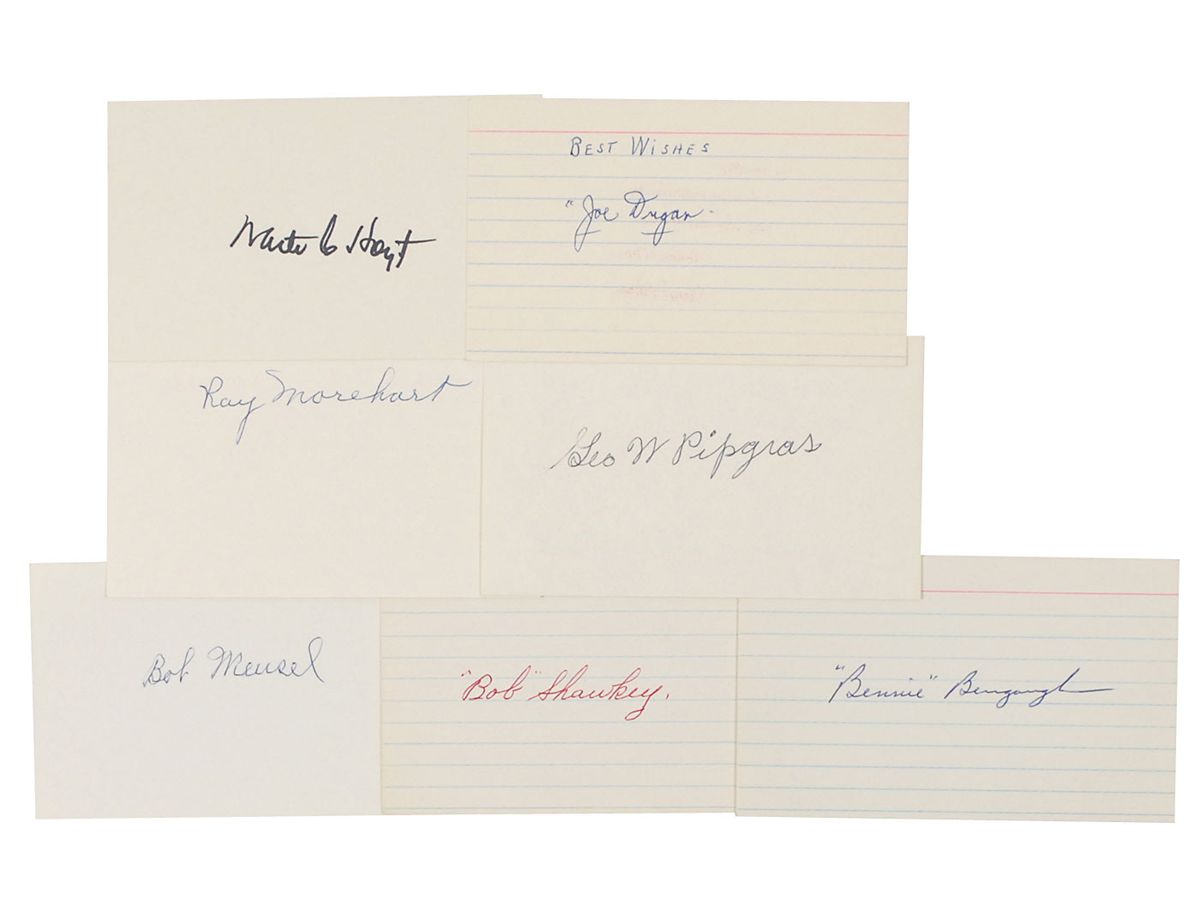 Waite C Hoyt
BEST WISHES
"Joe Dugan.
Ray Morehart
Geo W Pipgras
Bob Meusel
"Bob" Shawkey.
"Bennie" Bengough